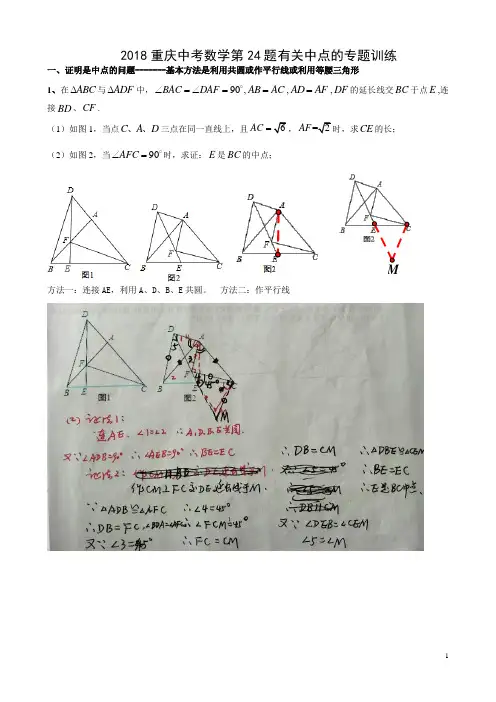 2018重庆中考数学第24题有关中点的专题训练
一、证明是中点的问题-------基本方法是利用共圆或作平行线或利用等腰三角形
1、在ΔABC与ΔADF中，∠BAC=∠DAF=90°，AB=AC，AD=AF，DF的延长线交BC于点E,连
接BD、CF．
（1）如图1，当点C、A、D三点在同一直线上，且AC=√6，AF=√2时，求CE的长；
（2）如图2，当∠AFC=90°时，求证：E是BC的中点；
D
A
F
B
E
C
图1
D
A
F
B
E
C
图2
D
A
F
B
E
C
图2
D
A
F
B
E
C
图2
M
方法一：连接AE，利用A、D、B、E共圆。 方法二：作平行线
D
A
F
B
E
C
图1
M
(2) 证法1：
连AE、∠1=∠2 ∴A,D,B,E共圆.
又∵∠ADB=90° ∴∠AEB=90° ∴BE=EC
证法2：
作CM⊥FC交DE延长线于M.
∵△ADB≌△AFC ∴∠4=45°
∴DB=FC,∠BDA=∠AFC ∴∠FCM=45°
又∵∠3=45° ∴FC=CM
∴DB=CM ∴△DBE≌△CEM
∴BE=EC
∴E是BC中点.
∴DB∥CM
又∵∠DEB=∠CEM
∠5=∠M
1